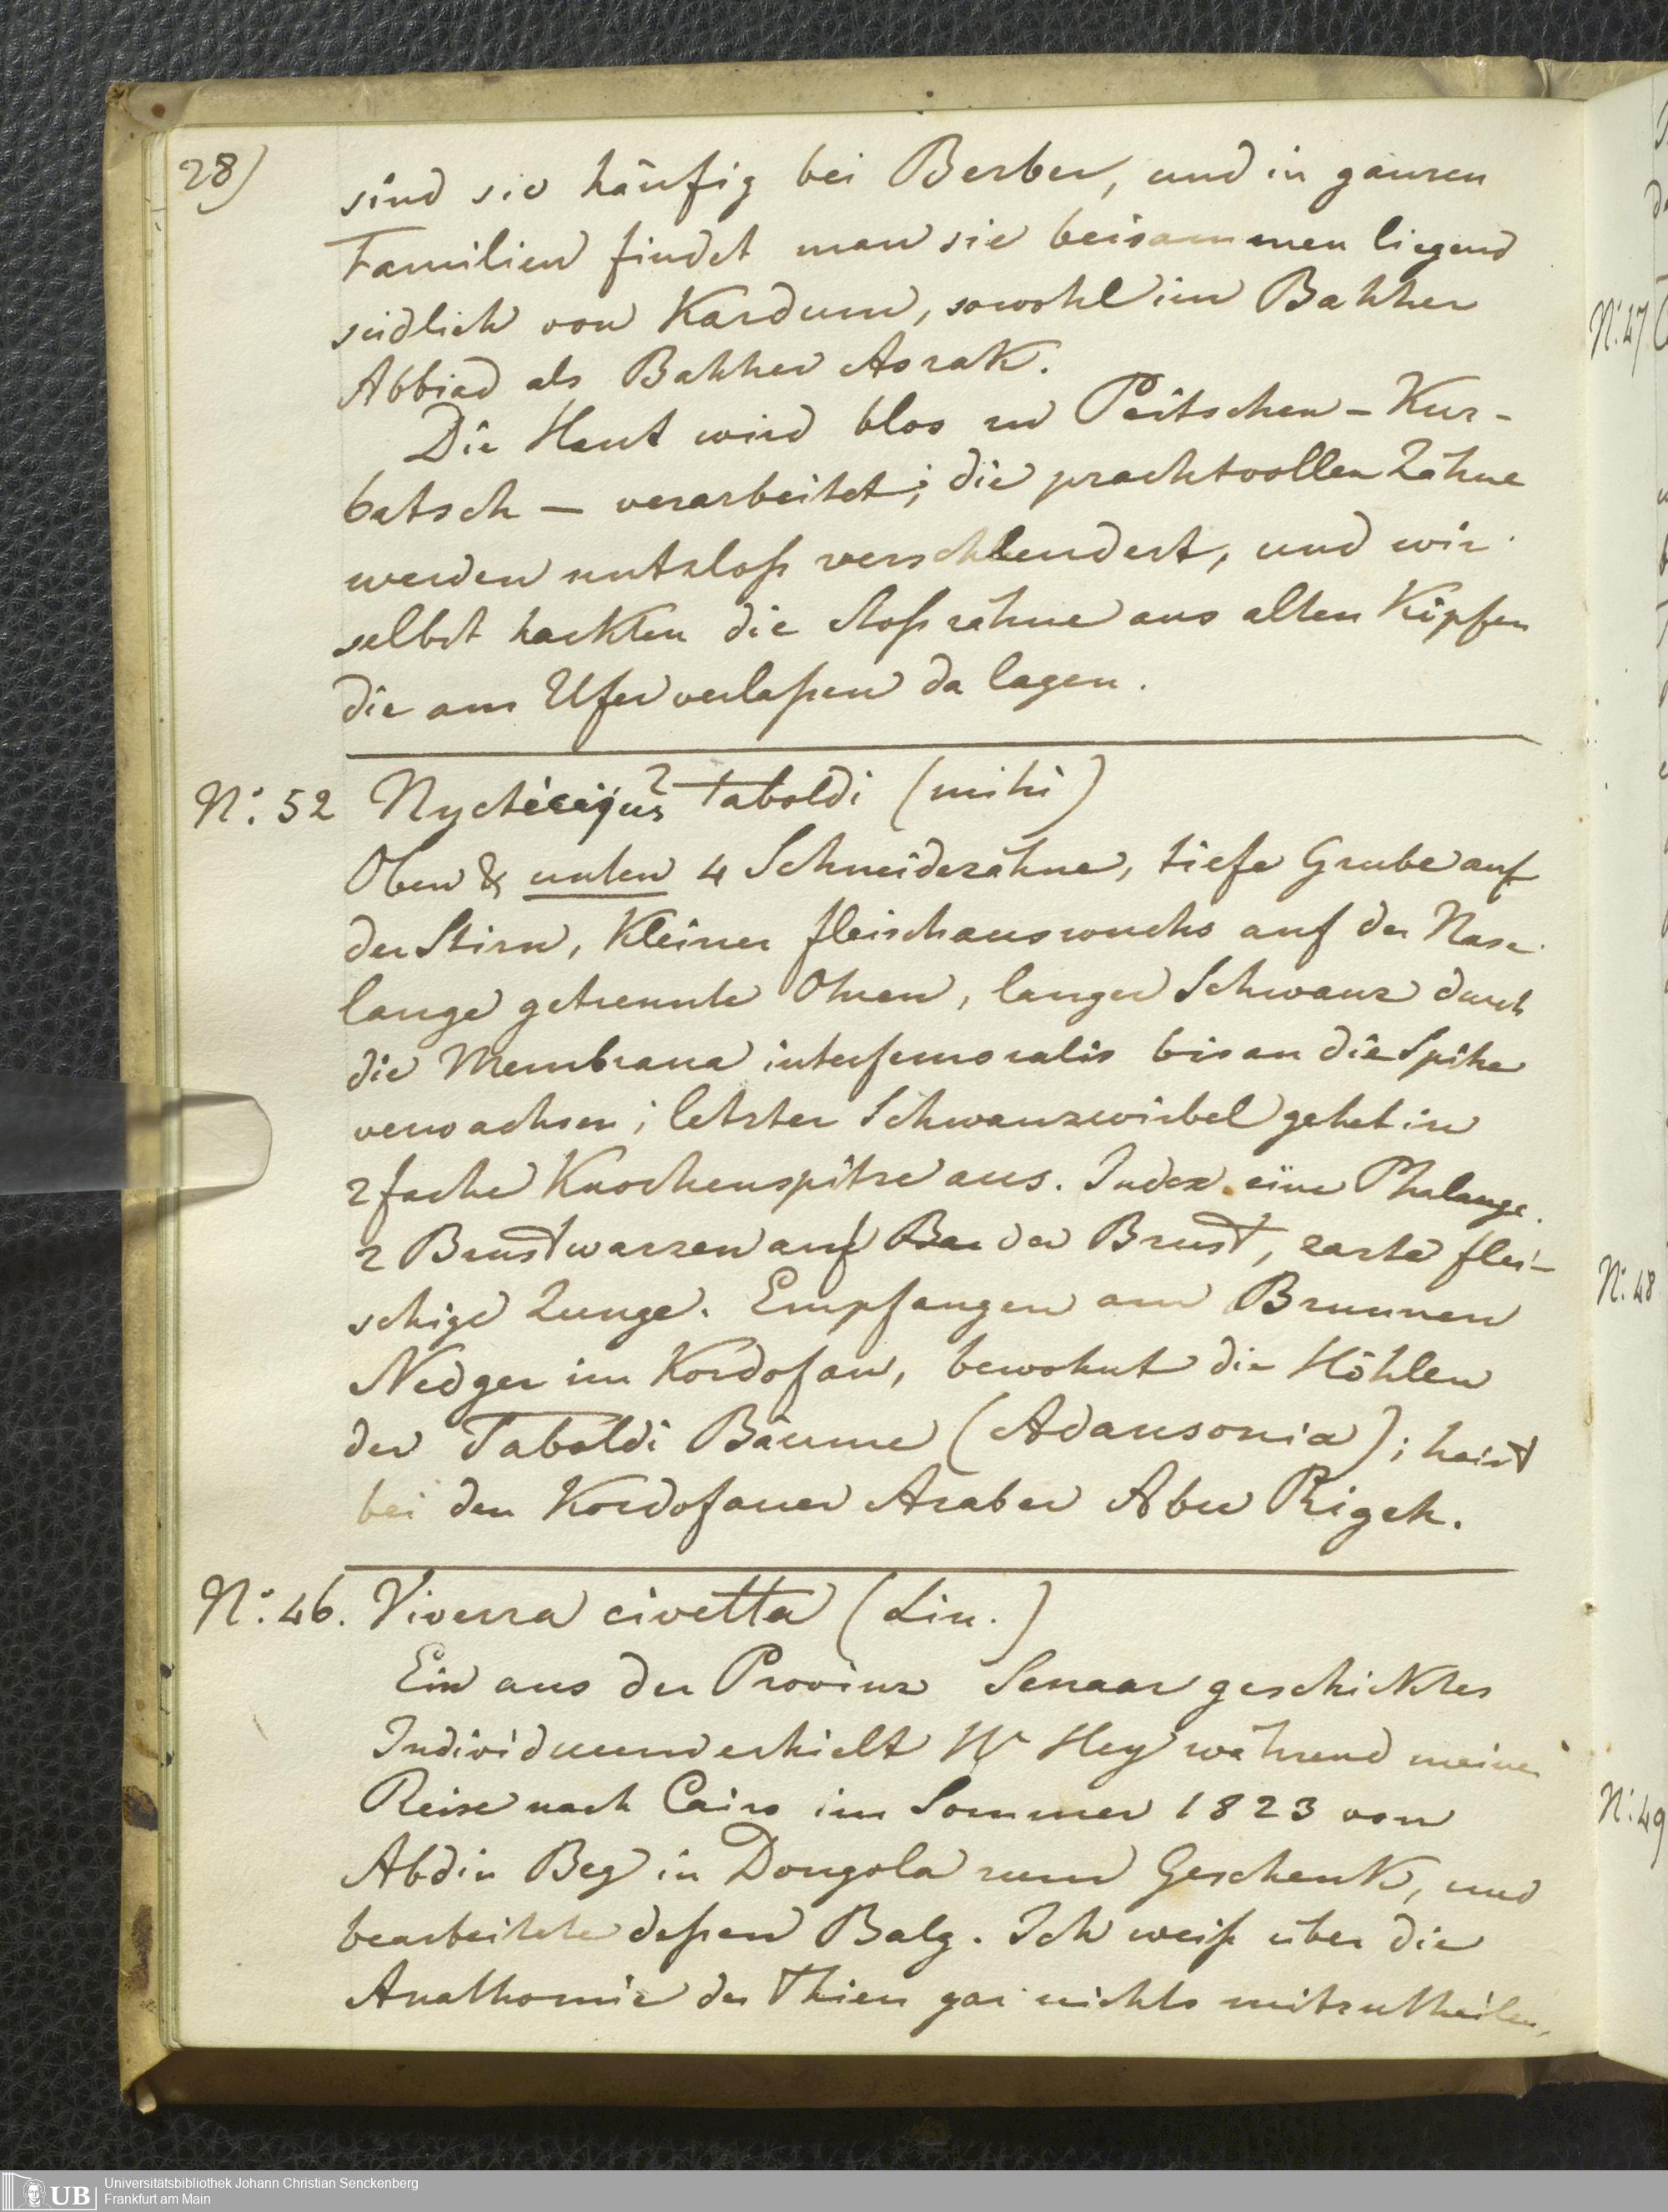 28)
sind sie häufig bei Berber, und in ganzen
Familien findet man sie beisammen liegend
südlich von Kardum, sowohl im Bahher
Abbiad als Bahher Asrak.
Die Haut wird blos zu Peitschen – Kur-
batsch – verarbeitet; die prachtvollen Zähne
werden nutzloß verschleudert, und wir
selbst hackten die Stoßzähne aus alten Köpfen
die am Ufer verlaßen da lagen.
N: 52 Nycticejus? Taboldi (mihi)
Oben & unten 4 Schneidezähne, tiefe Grube auf
der Stirn, kleiner fleischauswuchs auf der Nase
lange getrennte Ohren, langer Schwanz durch
die Membrana interfemoralis bis an die Spitze
verwachsen; letzter Schwanzwirbel gehet in
2 fache Knochenspitze aus. Index eine Phalange.
2 Brustwarzen auf der Brust, zarte flei-
schige Zunge. Empfangen am Brunnen
Nedger im Kordofan, bewohnt die Höhlen
der Taboldi Bäume (Adansonia); heist
bei den Kordofaner Araber Abu Rigeh.
N: 46. Viverra civetta (Lin.)
Ein aus der Provinz Senaar geschicktes
Individuum erhielt Hr Hey während meiner
Reise nach Cairo im Sommer 1823 von
Abdin Beg in Dongola zum Geschenk, und
bearbeitete deßen Balg. Ich weiß über die
Anathomie des Thiers gar nichts mitzutheilen,
N: 47
N: 48
N: 49
UB Universitätsbibliothek Johann Christian Senckenberg
Frankfurt am Main